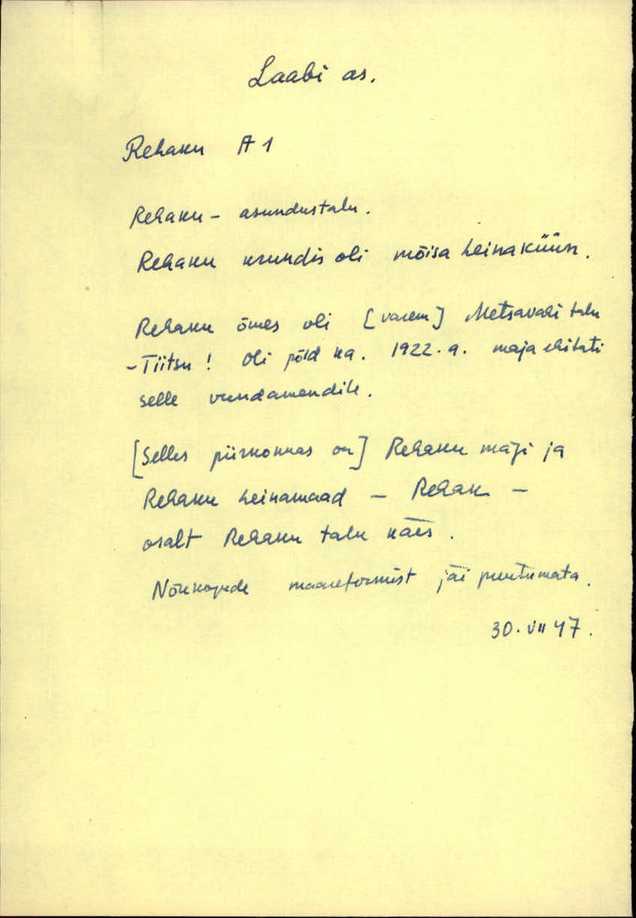 Laabi as.
Rehaku A 1
Rehaku - asundustalu.
Rehaku krundis oli mõisa heinaküün.
Rehaku õues oli [varem] Metsavahi talu
- Tiitsu! Oli põld ka. 1922. a. maja ehitati
selle vundamendile.
[Selles piirkonnas on] Rehaku mägi ja
Rehaku heinamaad - Rehaku -
osalt Rehaku talu käes.
maareformist jäi puutumata.
30. VII 47.